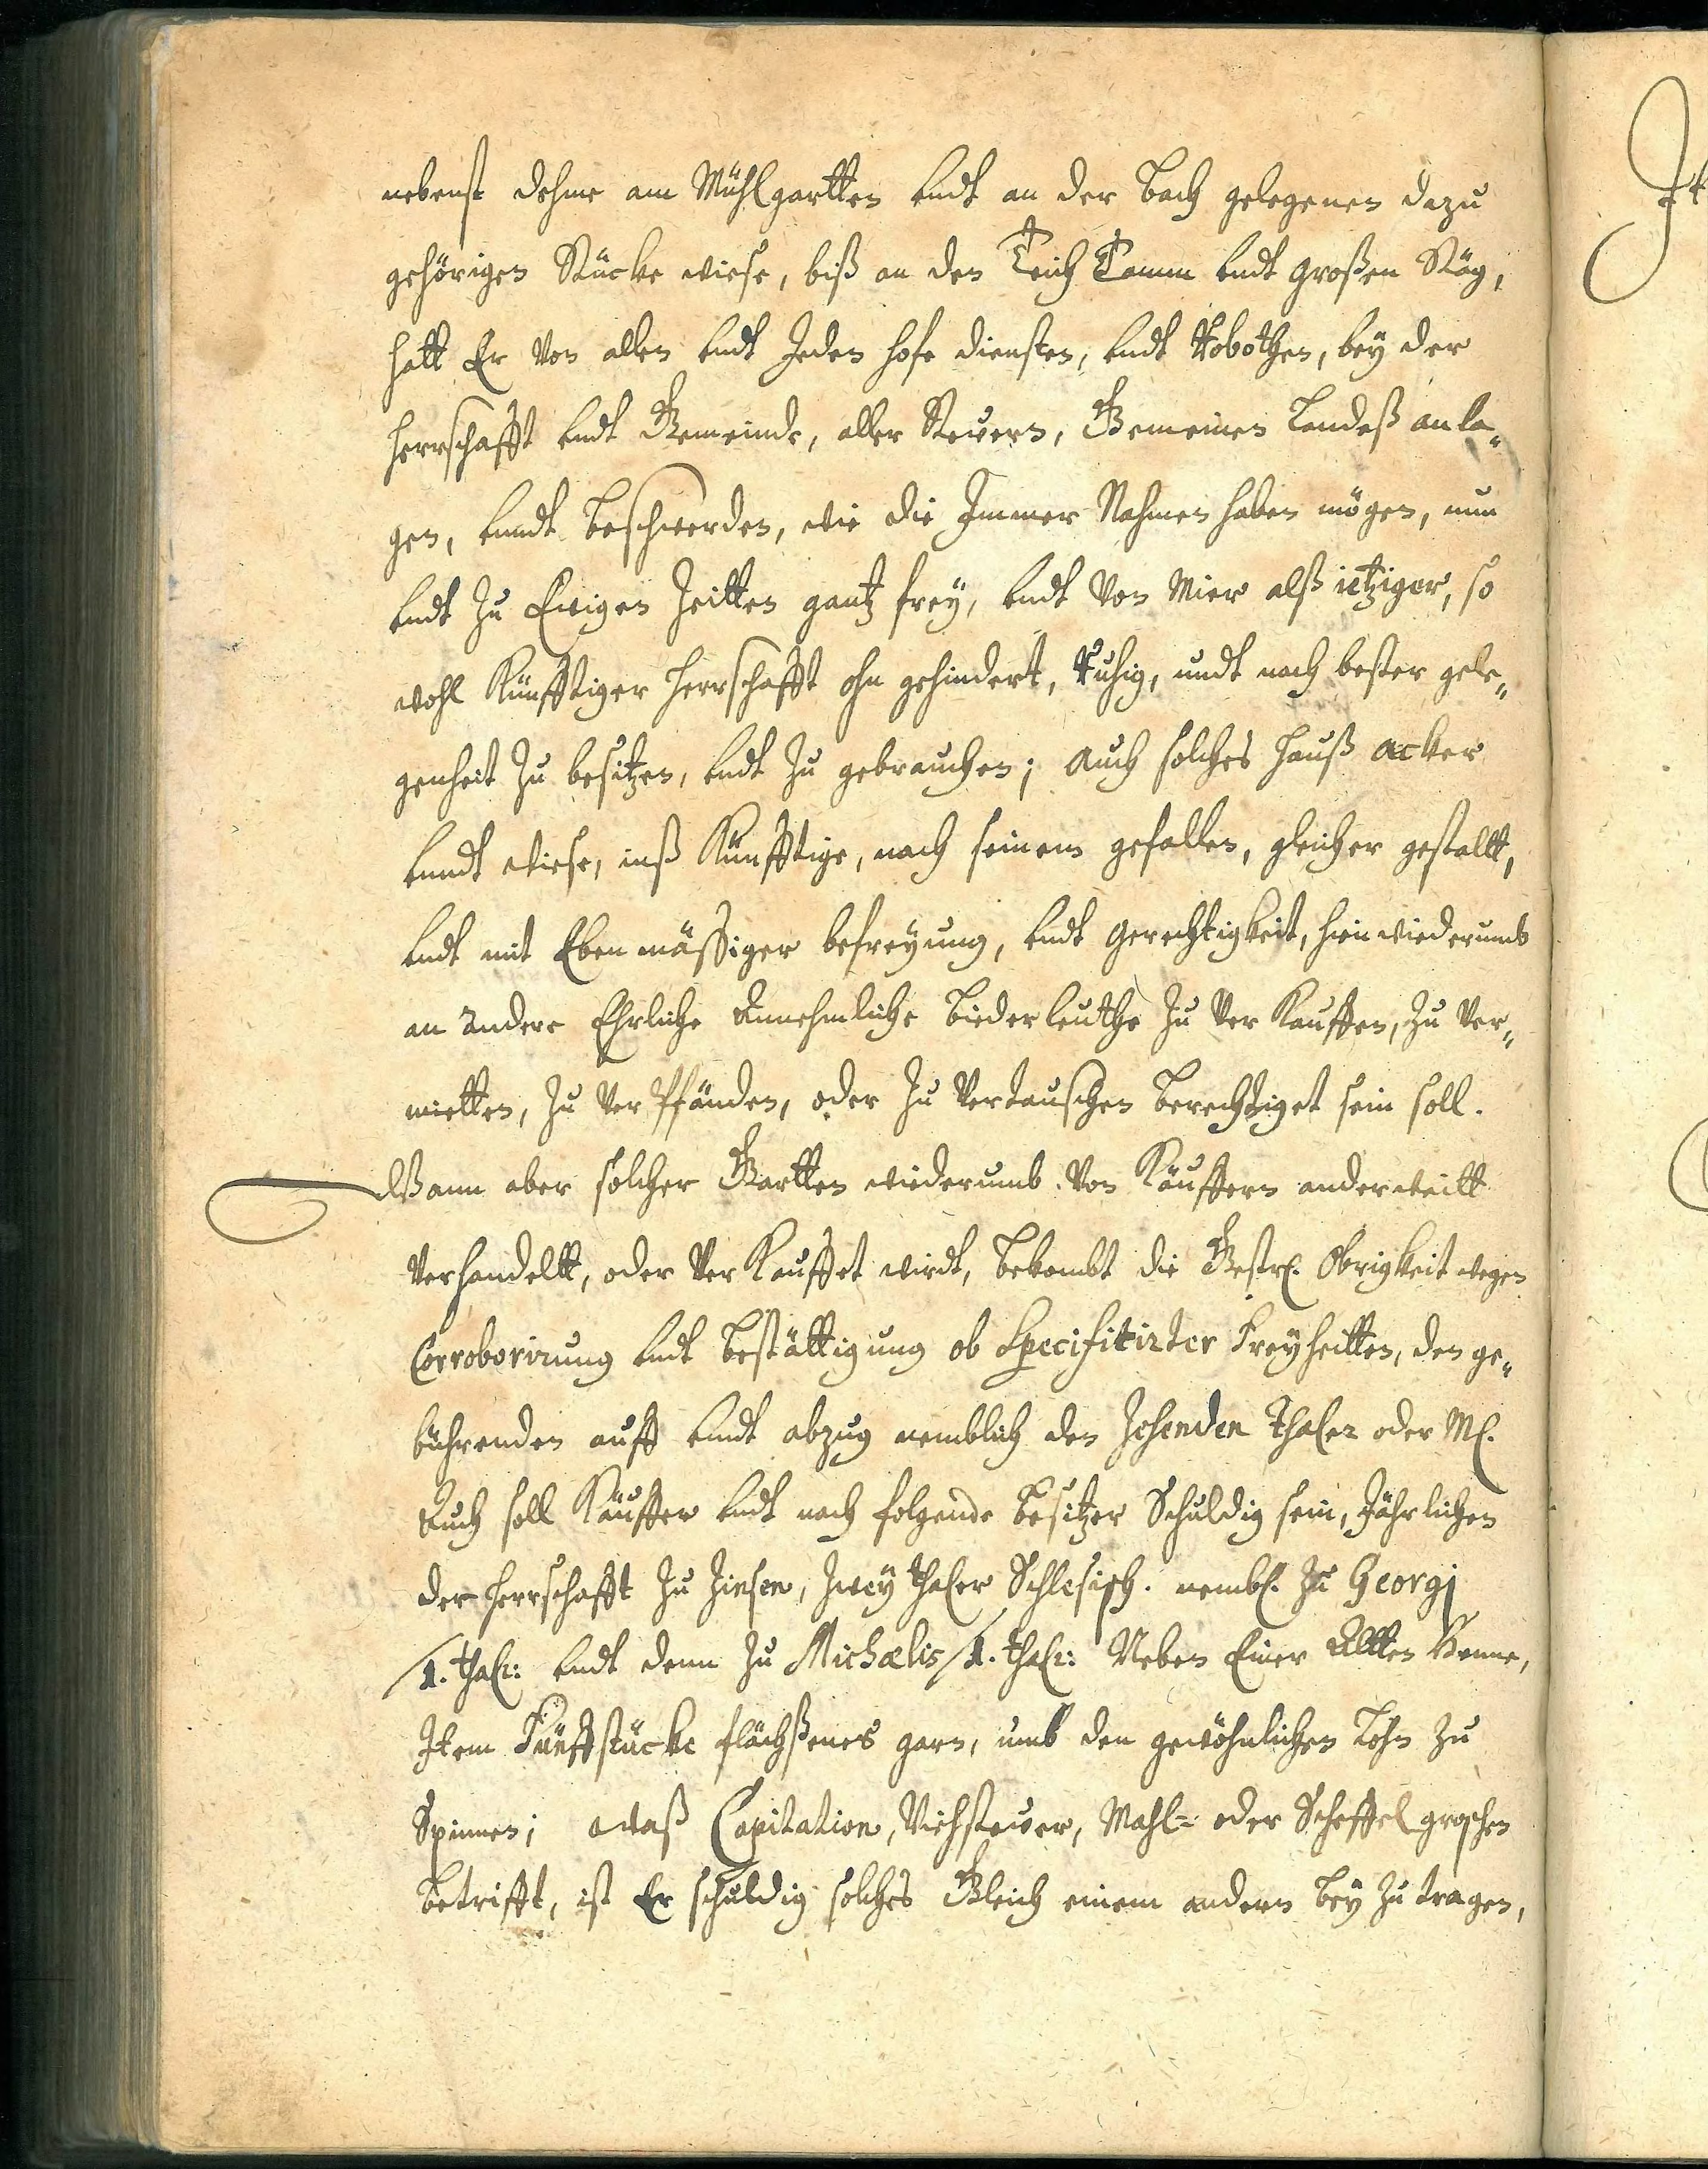 nebenst dehme am Mühlgartten undt an der Bach gelegenen dazu
gehörigen Stücke wiese, biß an den Teich Tamm undt großen Stäg,
hatt Er von allen undt Jeden hofe diensten, undt Robothen, bey der
herrschafft undt Gemeinde, aller Steuern, Gemeinen Landeß anla„
gen, unndt beschwerden, wie die Immer Nahmen haben mögen, nun
undt zu Ewigen Zeitten gantz frey, undt von Mier alß ietziger, so
wohl Künfftiger herrschafft ohn gehindert, Ruhig, undt nach bester gele„
genheit zu besitzen, undt zu gebrauchen; auch solches hauß acker
unndt wiese, inß Künfftige, nach seinem gefallen, gleicher gestallt,
undt mit Eben mässiger befreyung, undt gerechtigkeit, hinwiederumb
an andere Ehrliche Annehmliche Biederleuthe zu ver Kauffen, zu ver„
mietten, zu ver Pfänden, oder zu vertauschen berechtiget sein soll.
Wann aber solcher Gartten wiederumb von Käuffern anderweitt
verhandellt, oder ver Kauffet wirdt, bekombt die Gestr. Obrigkeit wegen
Corroborirung undt bestättigung ob Specificirter Freyheitten, den ge„
bührenden auff undt abzug nemblich den Zehenden thaler oder M.
Auch soll Käuffer undt nach folgende besitzer Schuldig sein, Jährlichen
der herrschafft zu Zinsen, Zwey thaler Schlesisch. nembl. zu Georgj
/1. thal: undt denn zu Michaelis /1. thal: Neben Einer Altten Henne,
Item Fünff stücke flächßenes garn, umb den gewöhnlichen Lohn zu
Spinnen; waß Capitation, Viehsteuer, Mahl= oder Scheffel groschen
betrifft, ist Er schuldig solches Gleich einem andern bey zu tragen,